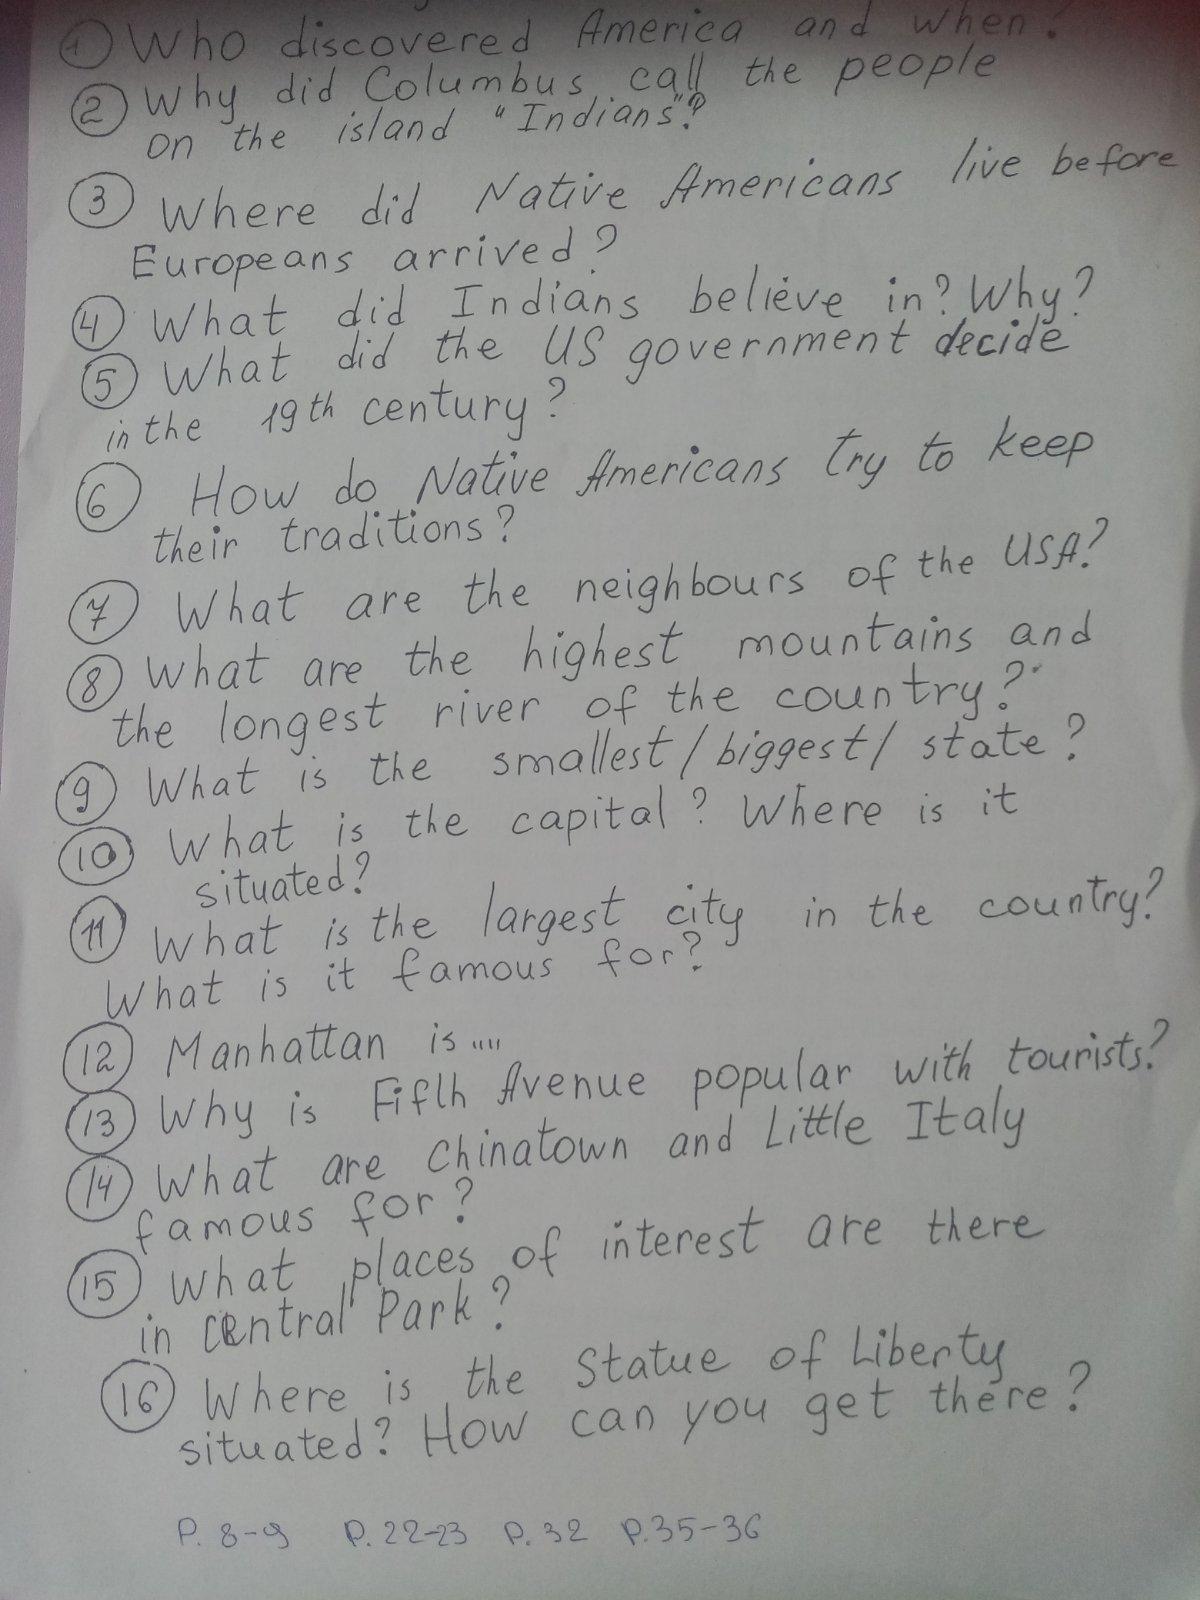 1 Who discovered America and when?
2 Why did Columbus call the people
on the island "Indians"?
3 Where did Native Americans live before
Europeans arrived?
4 What did Indians believe in? Why?
5 What did the US government decide
in the 19th century?
6 How do Native Americans try to keep
their traditions?
7 What are the neighbours of the USA?
8 What are the highest mountains and
the longest river of the country?
9 What is the smallest/biggest/ state?
10 What is the capital? Where is it
situated?
11 What is the largest city in the country?
What is it famous for?
12 Manhattan is .....
13 Why is Fifth Avenue popular with tourists?
14 What are Chinatown and Little Italy
famous for?
15 What places of interest are there
in Central Park?
16 Where is the Statue of Liberty
situated? How can you get there?
P. 8-9 P. 22-23 P. 32 P. 35-36